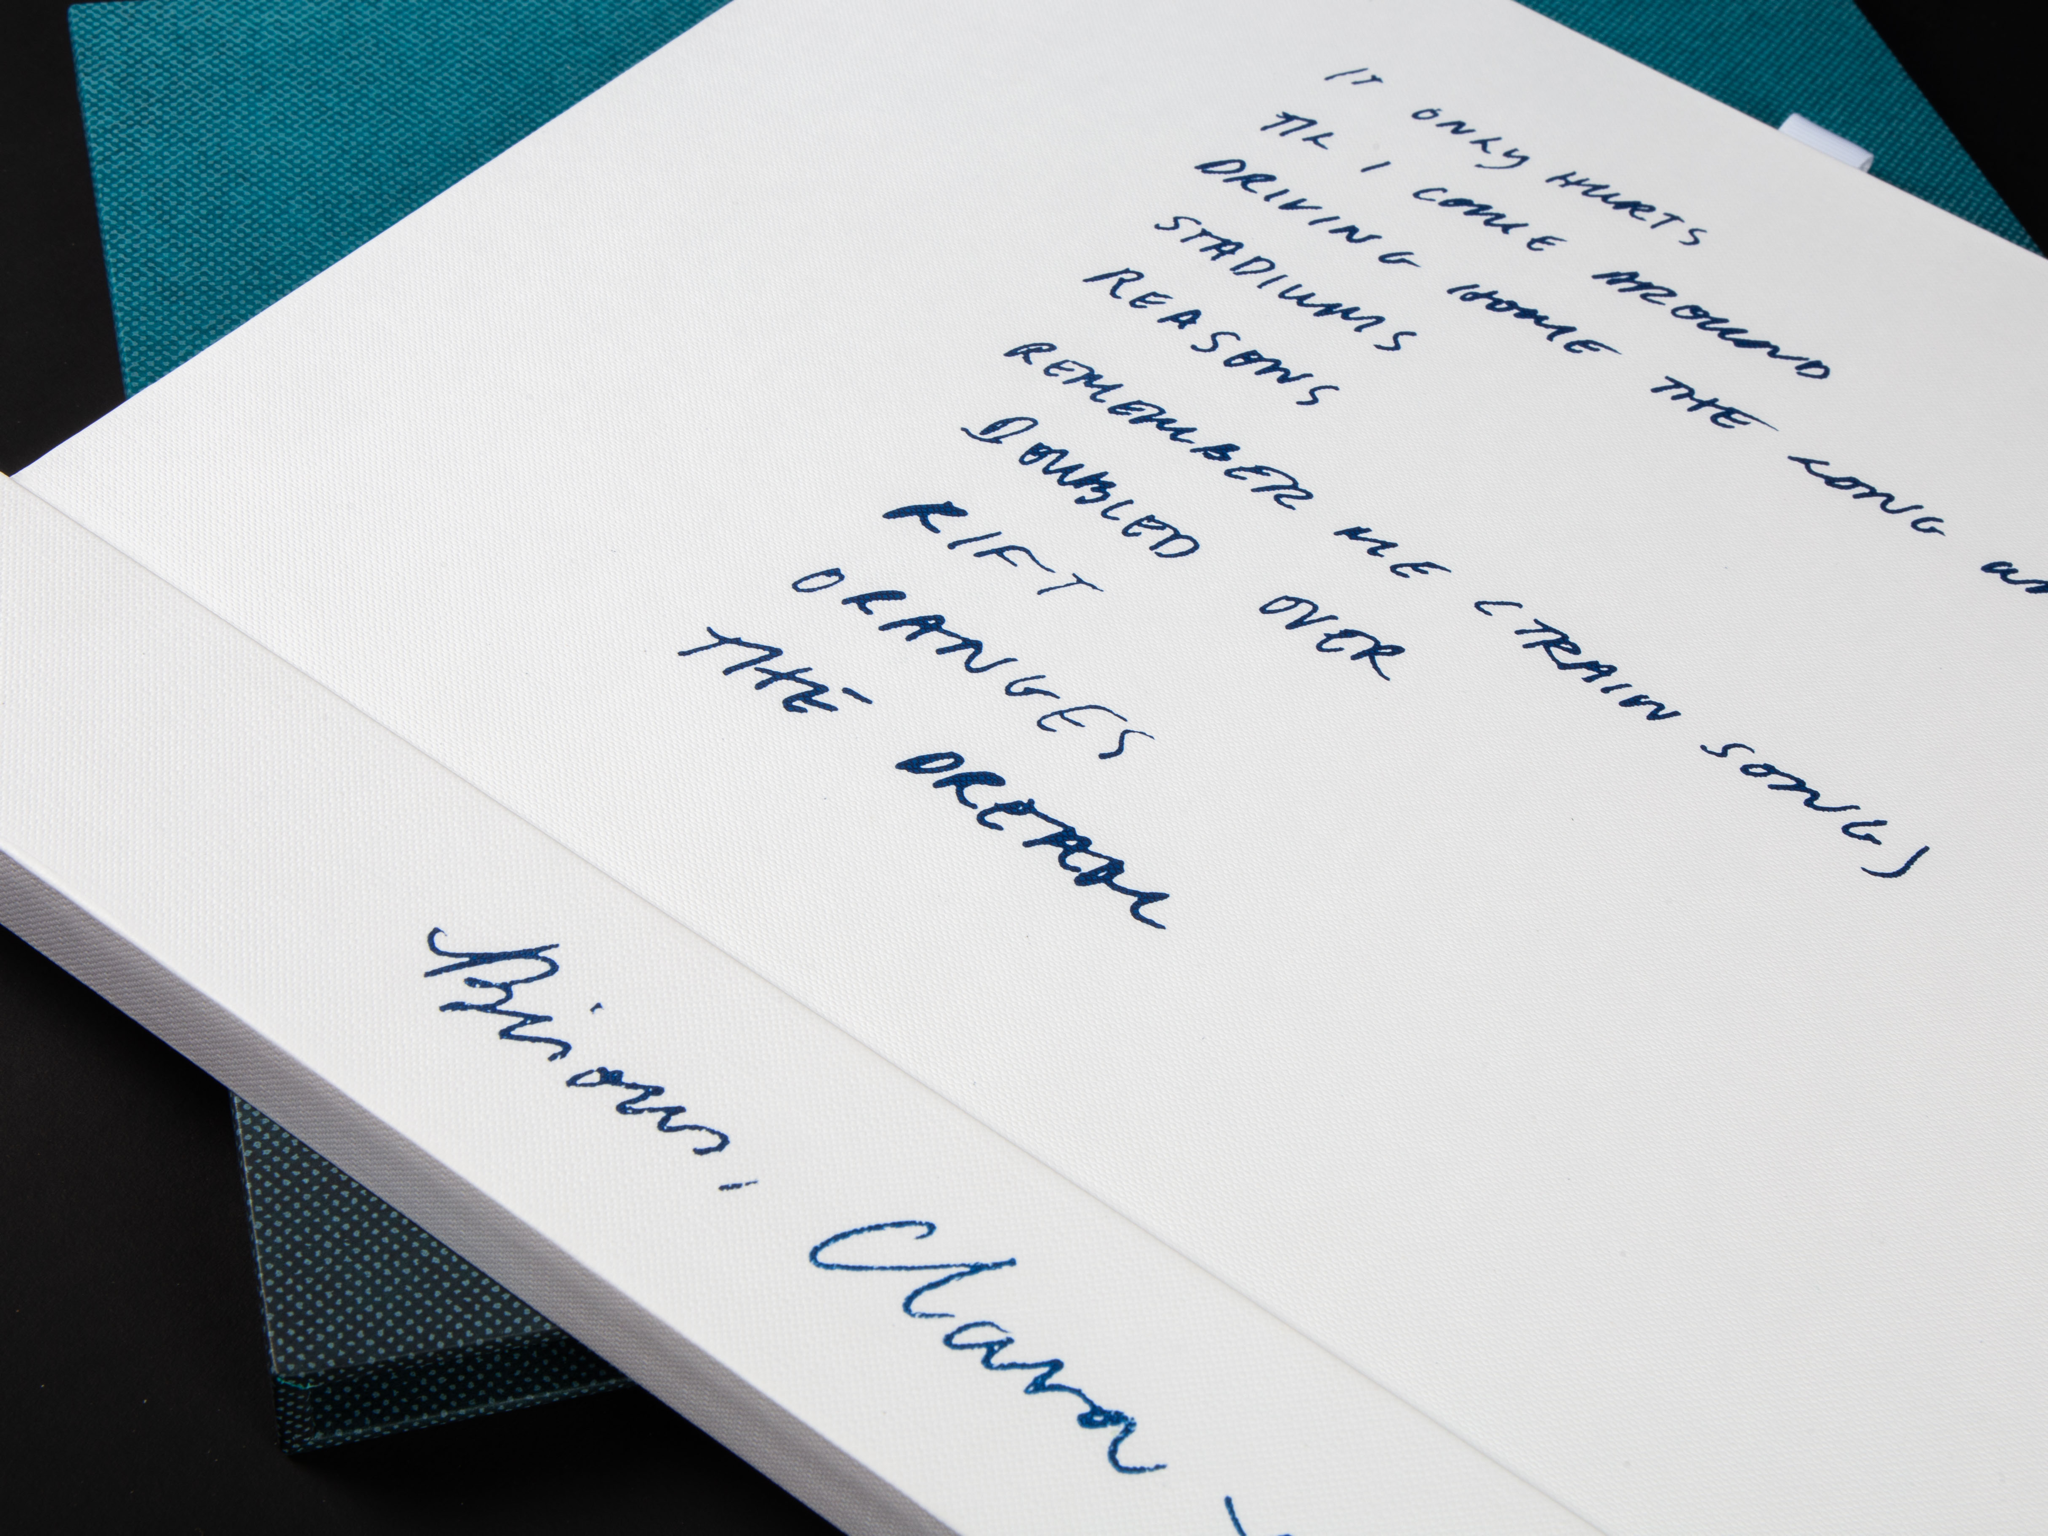 IT ONLY HURTS
TIL I COME AROUND
DRIVING HOME THE LONG
STADIUMS
REASONS
REMEMBER ME (TRAIN SONG)
DOUBLED OVER
RIFT
ORANGES
THE DREAM
Clara